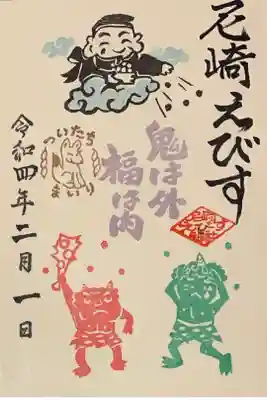 尼崎えびす
鬼は外
福は内
ついたち
まいり
令和四年二月一日